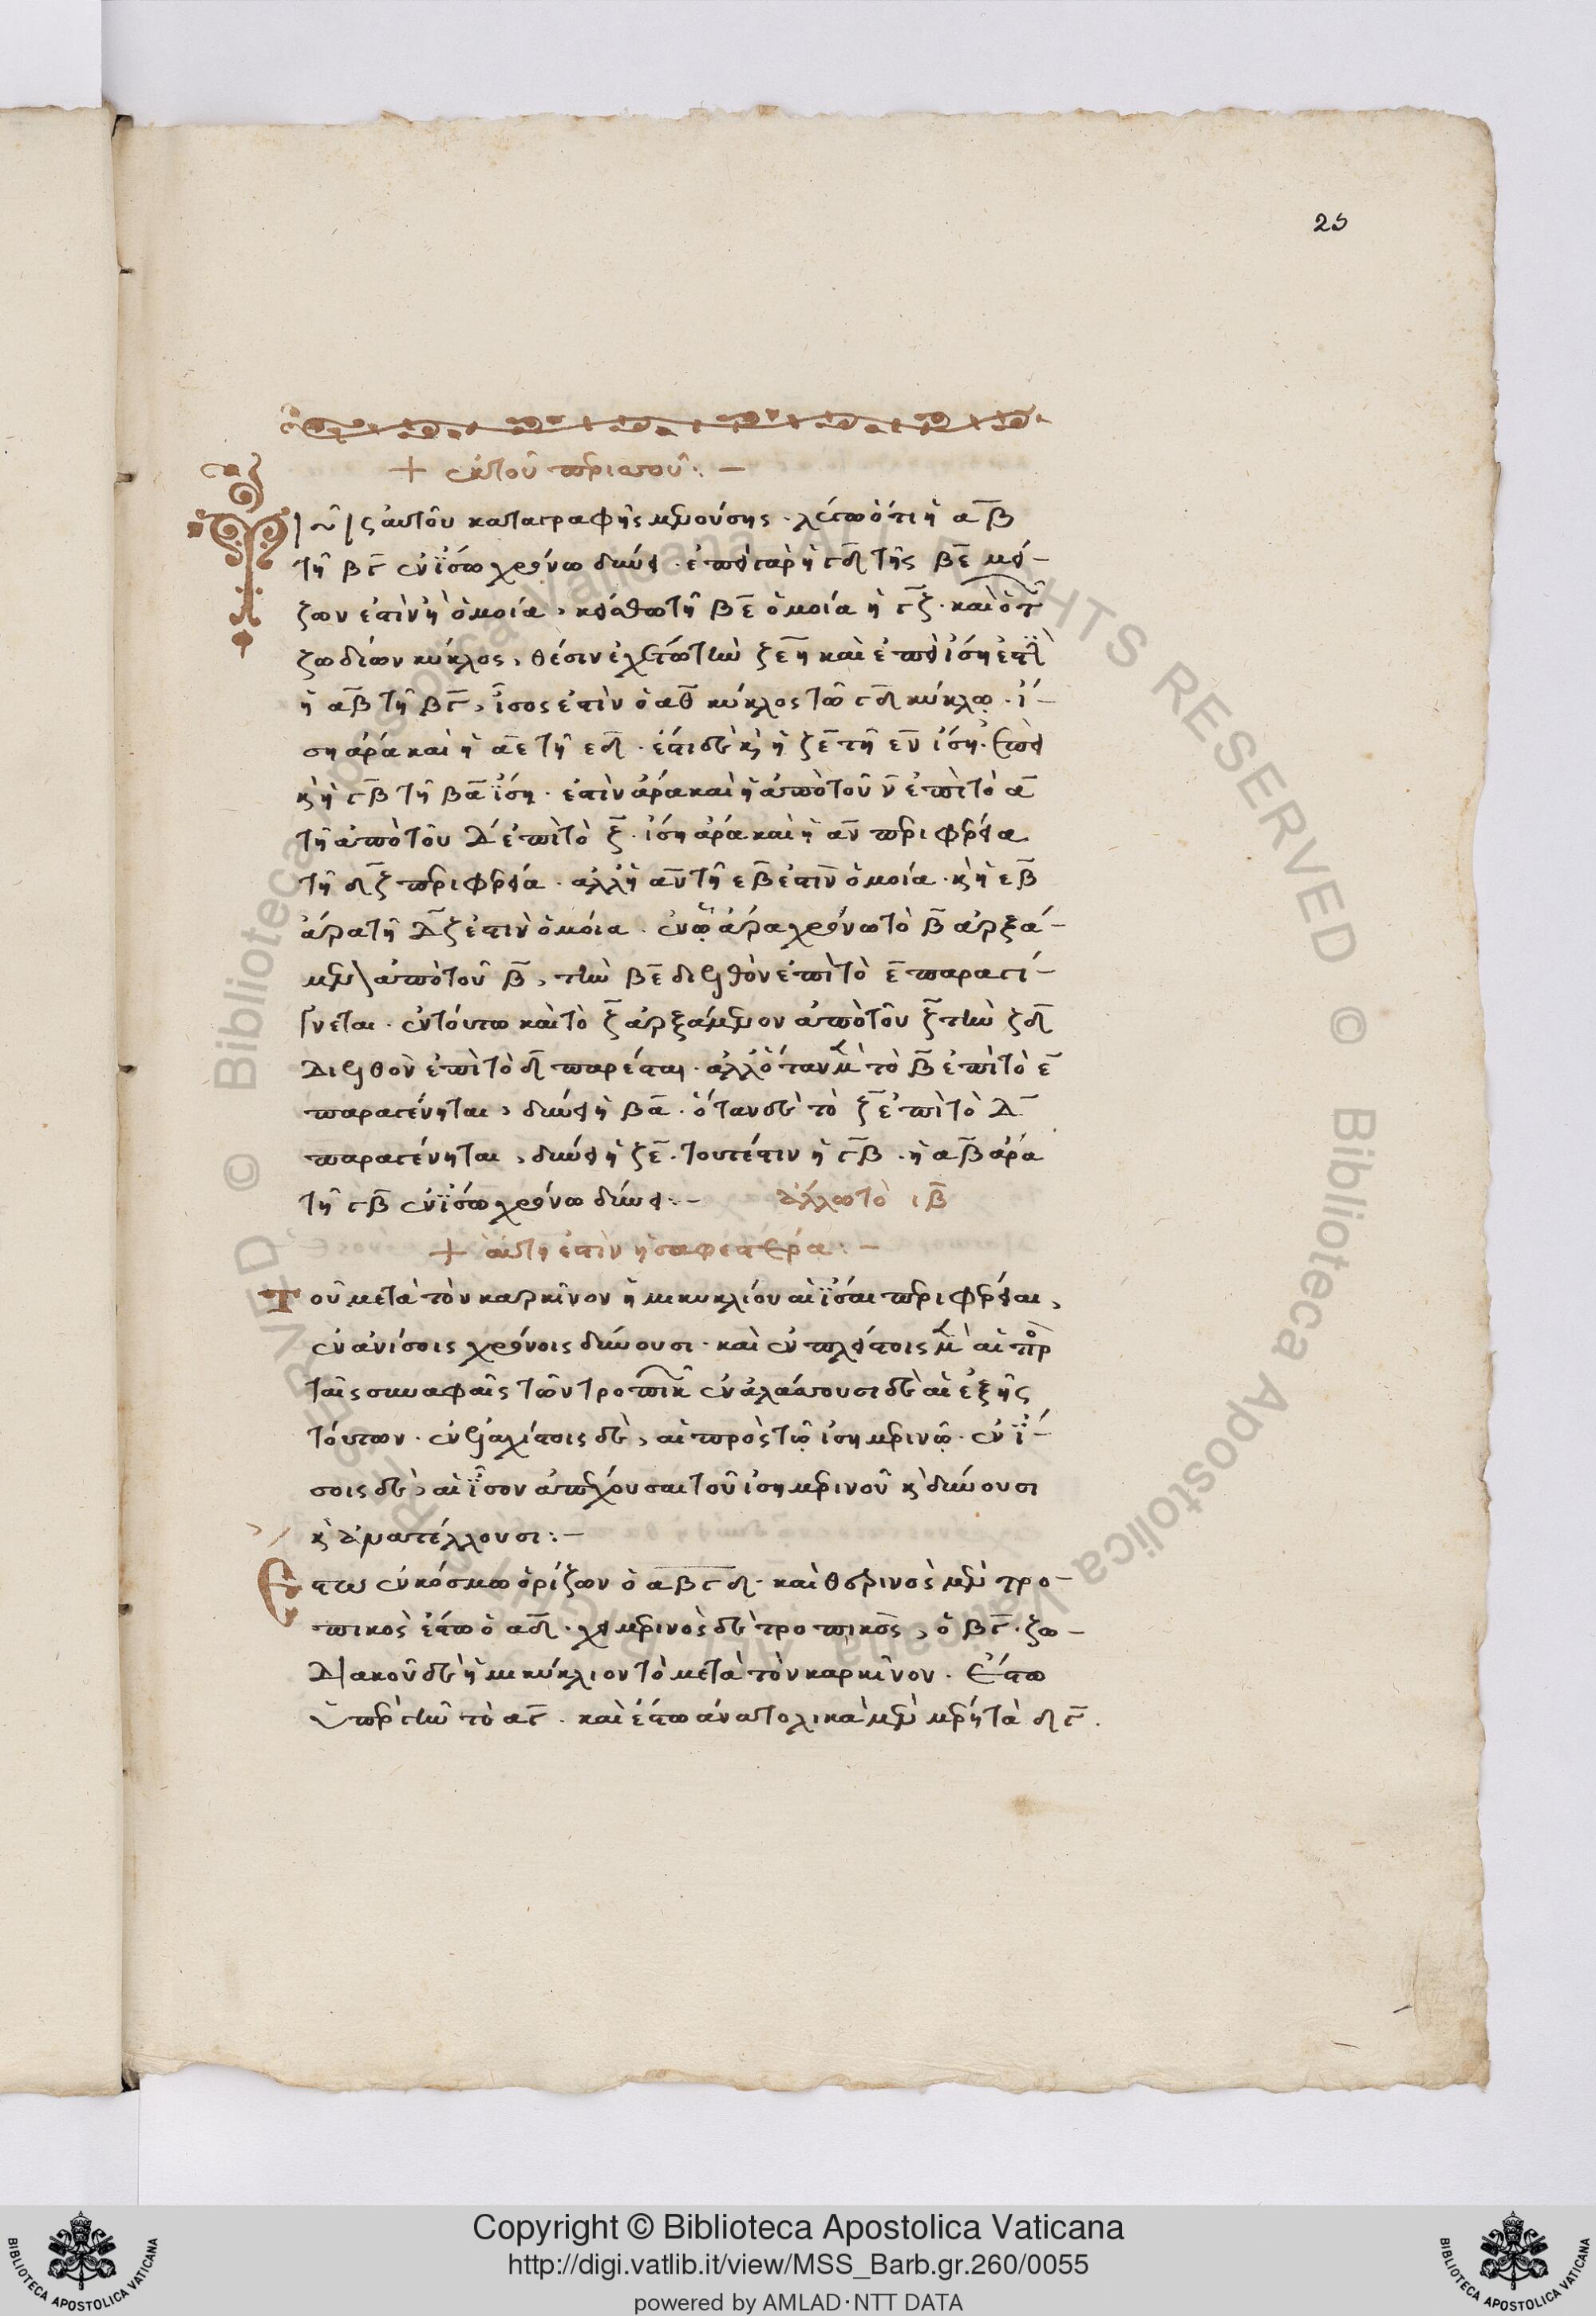 25
+ ἐκ τοῦ περισσοῦ: —
Τῆς αὐτοῦ καταγραφῆς μενούσης · λέγω ὅτι ἡ αβ
τῇ βγ ἐν ἴσω χρόνω δύνει · ἐπεὶ γὰρ ἡ γδ τῆς βε μεί-
ζων ἐστὶν ἢ ὁμοία, κείσθω τῇ βε ὁμοία ἡ γζ · καὶ ὁ τῶν
ζωδίων κύκλος, θέσιν ἐχέτω τὴν ζεη καὶ ἐπεὶ ἴση ἐστὶν
ἡ αβ τῇ βγ, ἴσος ἐστὶν ὁ αθ κύκλος τῶ γδ κύκλῳ · ἴ-
ση ἄρα καὶ ἡ αε τῇ εδ · ἔστι δὲ κὶ ἡ ζε τῇ εν ἴση · ἐπεὶ
κὶ ἡ γβ τῇ βα ἴση · ἐστὶν ἄρα καὶ ἡ ἀπὸ τοῦ ν ἐπὶ τὸ α
τῇ ἀπὸ τοῦ δ ἐπὶ τὸ ζ · ἴση ἄρα καὶ ἡ αν περιφέρεια
τῇ δζ περιφερεία · ἀλλ' ἡ αν τῇ εβ ἐστὶν ὁμοία · κὶ ἡ εβ
ἄρα τῇ δζ ἐστὶν ὁμοία · ἐν ᾧ ἄρα χρόνω τὸ β ἀρξά-
μενον ἀπὸ τοῦ β, τὴν βε διελθὸν ἐπὶ τὸ ε παραγί-
νεται · ἐν τούτω καὶ τὸ ζ ἀρξάμενον ἀπὸ τοῦ ζ τὴν ζδ
διελθὸν ἐπὶ τὸ δ παρέσται · ἀλλ' ὅταν μὲν τὸ β ἐπὶ τὸ ε
παραγένηται, δύνει ἡ βα · ὅταν δὲ τὸ ζ ἐπὶ τὸ δ
παραγένηται, δύνει ἡ ζε · τουτέστιν ἡ γβ · ἡ αβ ἄρα
τῇ γβ ἐν ἴσω χρόνω δύνει: — ἄλλως τὸ ιβ
+ αὕτη ἐστὶν ἡ σαφεστέρα: —
Τοῦ μετὰ τὸν καρκῖνον ἡμικυκλίου αἱ ἴσαι περιφέρειαι,
ἐν ἀνίσοις χρόνοις δύνουσι · καὶ ἐν πλείστοις μὲν αἱ πρὸς
ταῖς συναφαῖς τῶν τροπικῶν ἐν ἐλάσσουσι δὲ αἱ ἑξῆς
τούτων · ἐν ἐλαχίστοις δὲ, αἱ πρὸς τῷ ἰσημερινῷ · ἐν ἴ-
σοις δὲ, αἱ ἴσον ἀπέχουσαι τοῦ ἰσημερινοῦ κὶ δύνουσι
κὶ ἀνατέλλουσι: —
Ἔστω ἐν κόσμω ὁρίζων ὁ αβγδ · καὶ θερινὸς μὲν τρο-
πικὸς ἔστω ὁ αδ · χειμερινὸς δὲ τροπικὸς, ὁ βγ · ζω-
διακοῦ δὲ ἡμικύκλιον τὸ μετὰ τὸν καρκῖνον · ἔστω
ὑπὲρ γῆν τὸ αγ · καὶ ἔστω ἀνατολικὰ μὲν μέρη τὰ δγ.
Copyright © Biblioteca Apostolica Vaticana
http://digi.vatlib.it/view/MSS_Barb.gr.260/0055
powered by AMLAD·NTT DATA